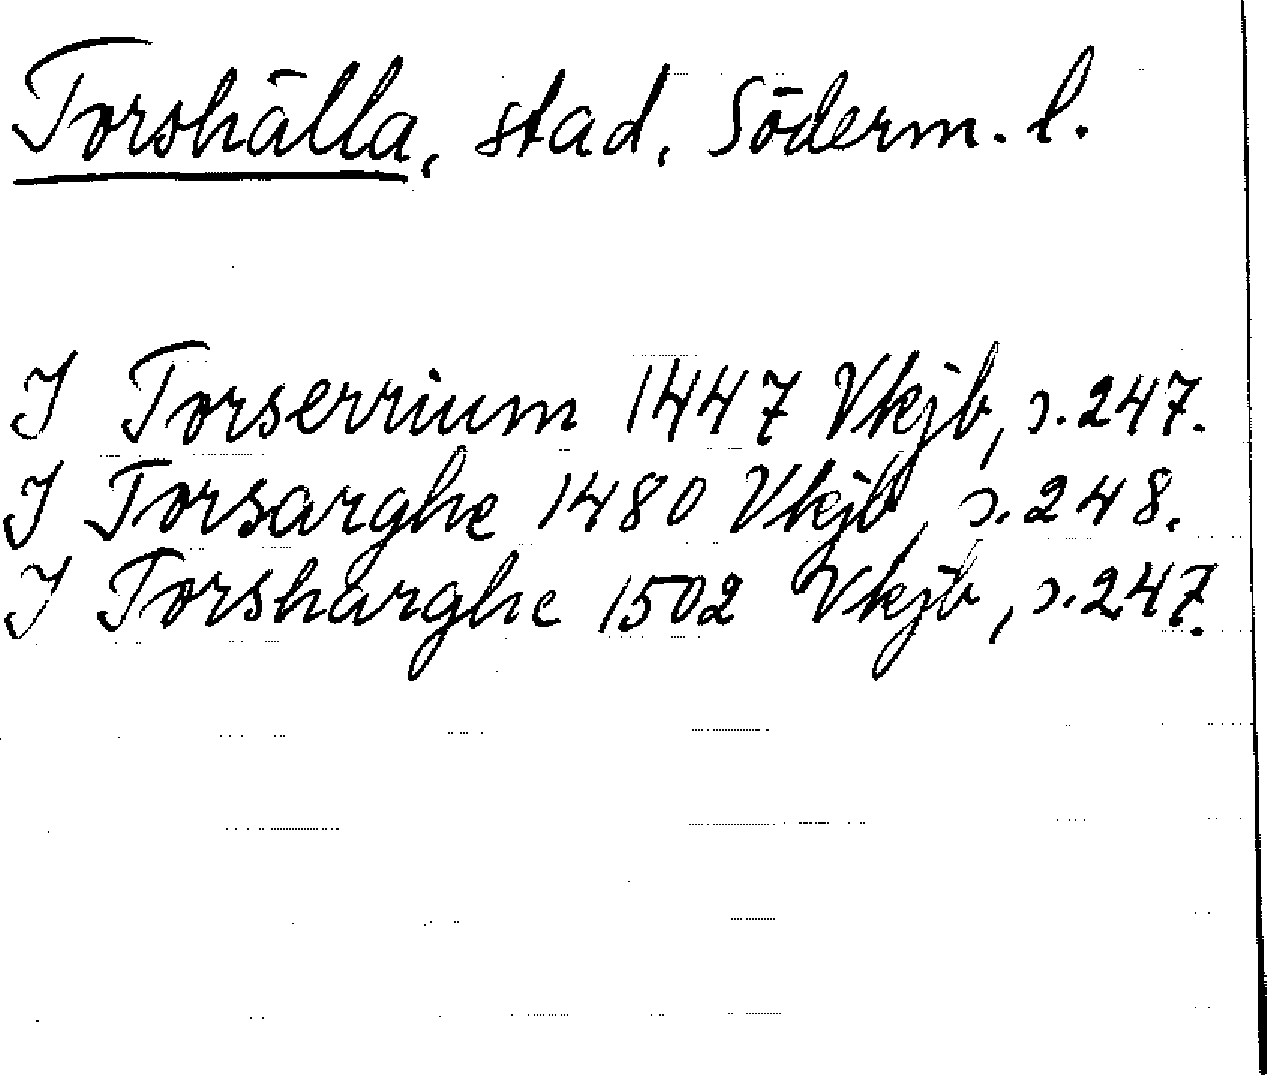 Torshälla, stad, Söderm. l.
I Torserrium 1447 Vkjb, s. 247.
I Torsarghe 1480 Vkjb, s. 248.
I Torsharghe 1502 Vkjb, s. 247.